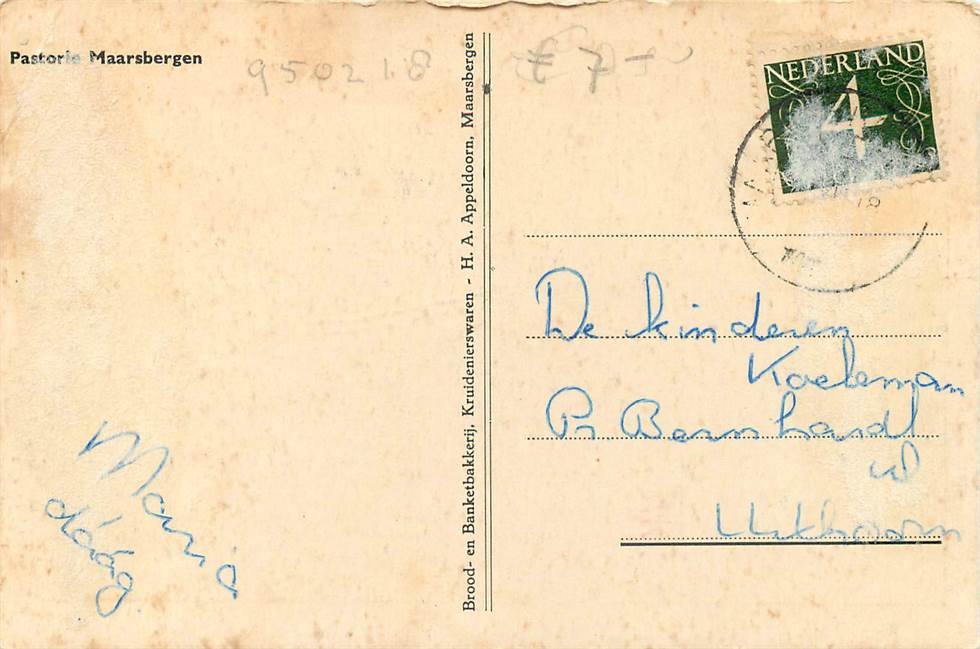 Pastorie Maarsbergen
950218
€ 7-
NEDERLAND
4
Brood- en Banketbakkerij, Kruidenierswaren - H. A. Appeldoorn, Maarsbergen
De kinderen
Koeleman
Pr Bernhardl
Uithoorn
Maria
dááág